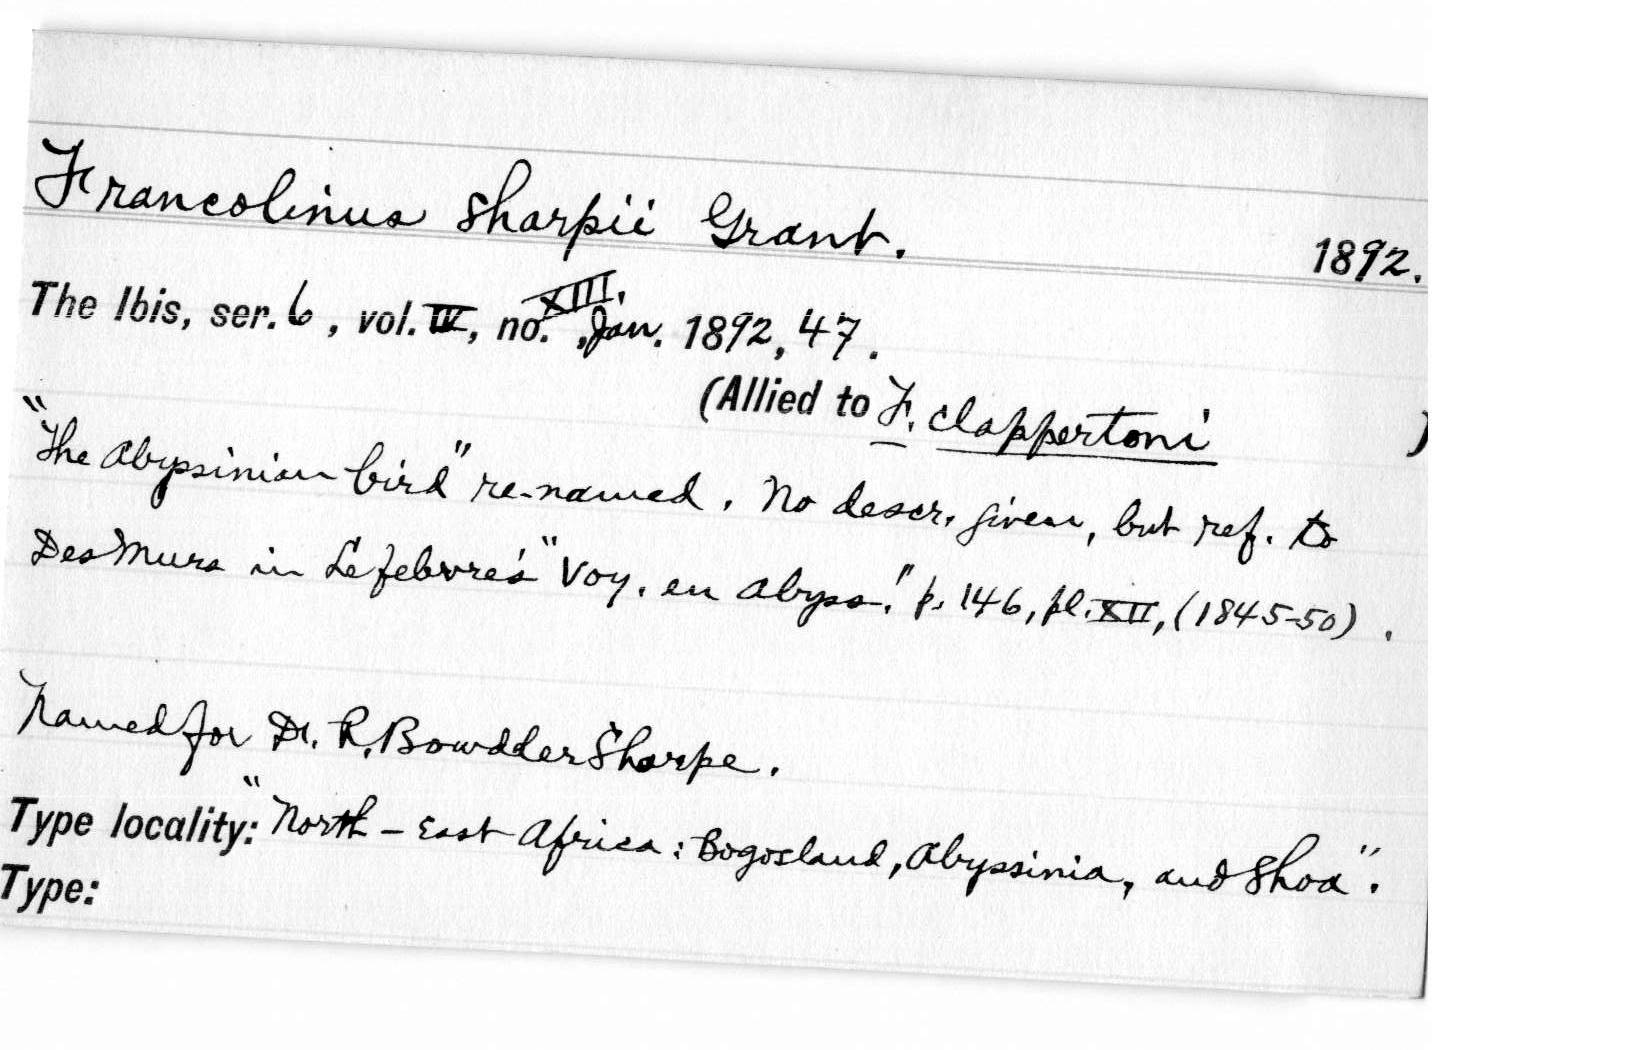 Francolinus sharpii Grant. 1892.
The Ibis, ser. 6, vol. IV, no. XIII., Jan. 1892, 47.
(Allied to F. clappertoni )
"The Abyssinian bird" re-named. No descr. given, but ref. to
Des Murs in Lefebvre's "Voy. en Abyss." p. 146, pl. XII, (1845-50).
Named for Dr. R. Bowdler Sharpe.
Type locality: "North-East Africa: Bogosland, Abyssinia, and Shoa".
Type: